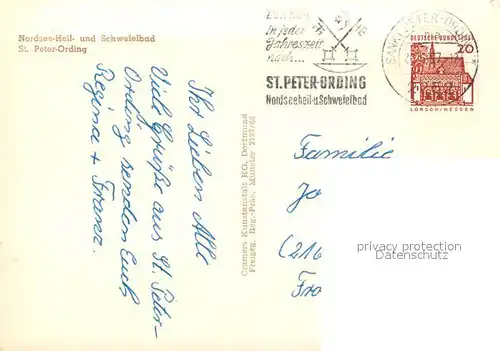 Nordsee-Heil- und Schwefelbad
St. Peter-Ording
Ihr Lieben Alle
Viele Grüße aus St. Peter-
Ording senden Euch
Regina + Franz.
Cramers Kunstanstalt KG, Dortmund
Freigeg. Reg.-Präs. Münster
in jeder
Jahreszeit
nach...
ST. PETER-ORDING
Nordseeheil-u.Schwefelbad
SANKT PETER-ORDING
DEUTSCHE BUNDESPOST
20
LORSCH/HESSEN
Familie
Jo
(216
Fra
privacy protection
Datenschutz